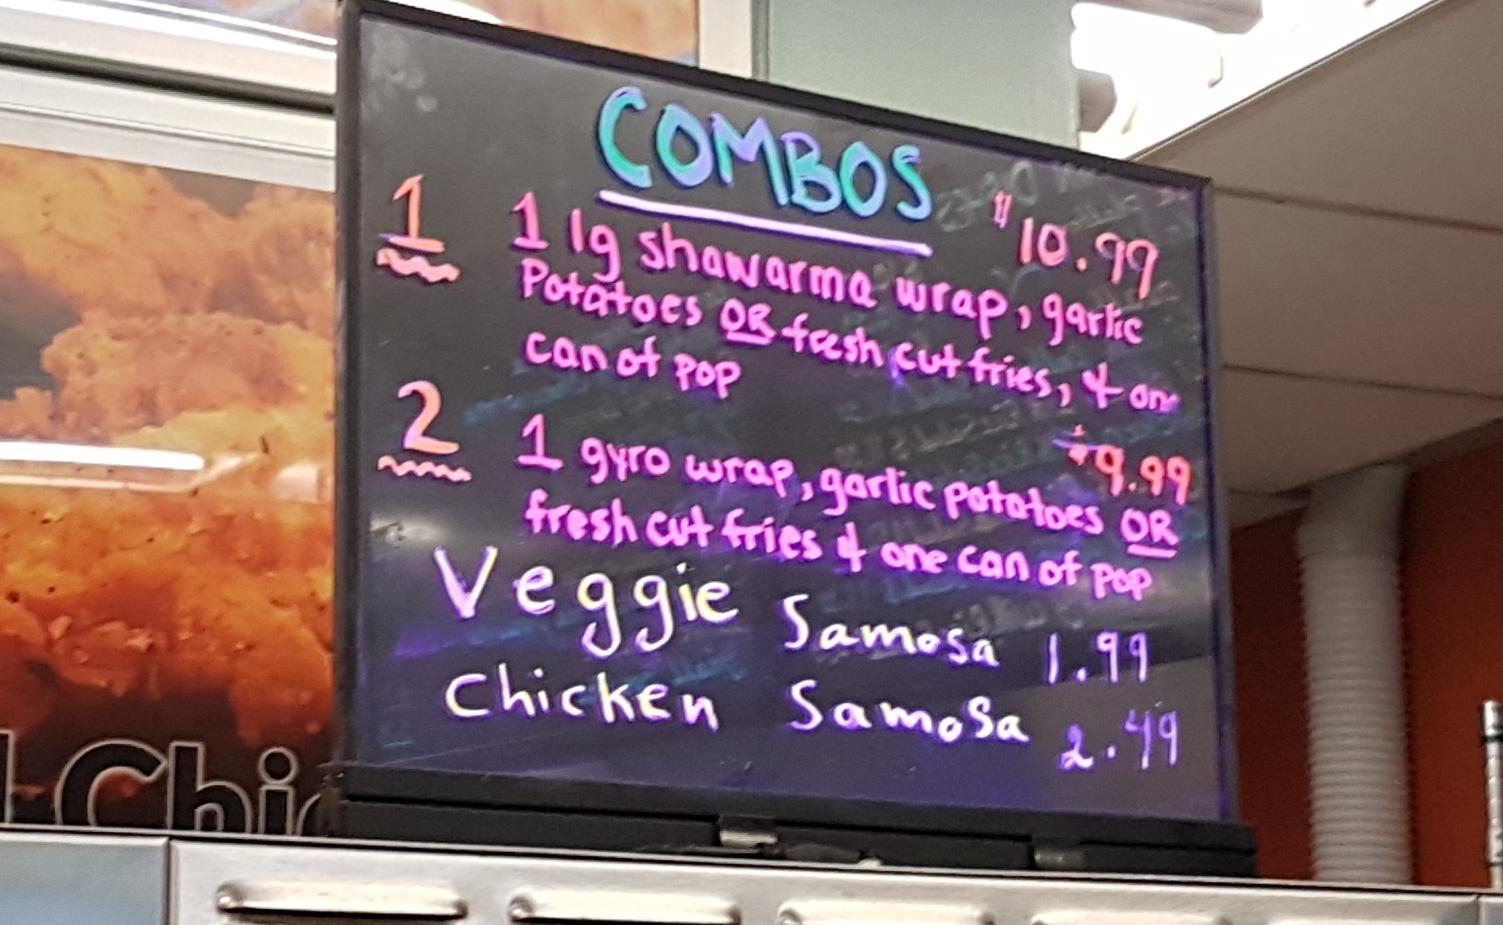 COMBOS
1
$10.99
1 lg shawarma wrap, garlic
Potatoes OR fresh cut fries, & one
can of pop
2
$9.99
1 gyro wrap, garlic potatoes OR
fresh cut fries & one can of pop
Veggie Samosa 1.99
Chicken Samosa 2.49
Chi